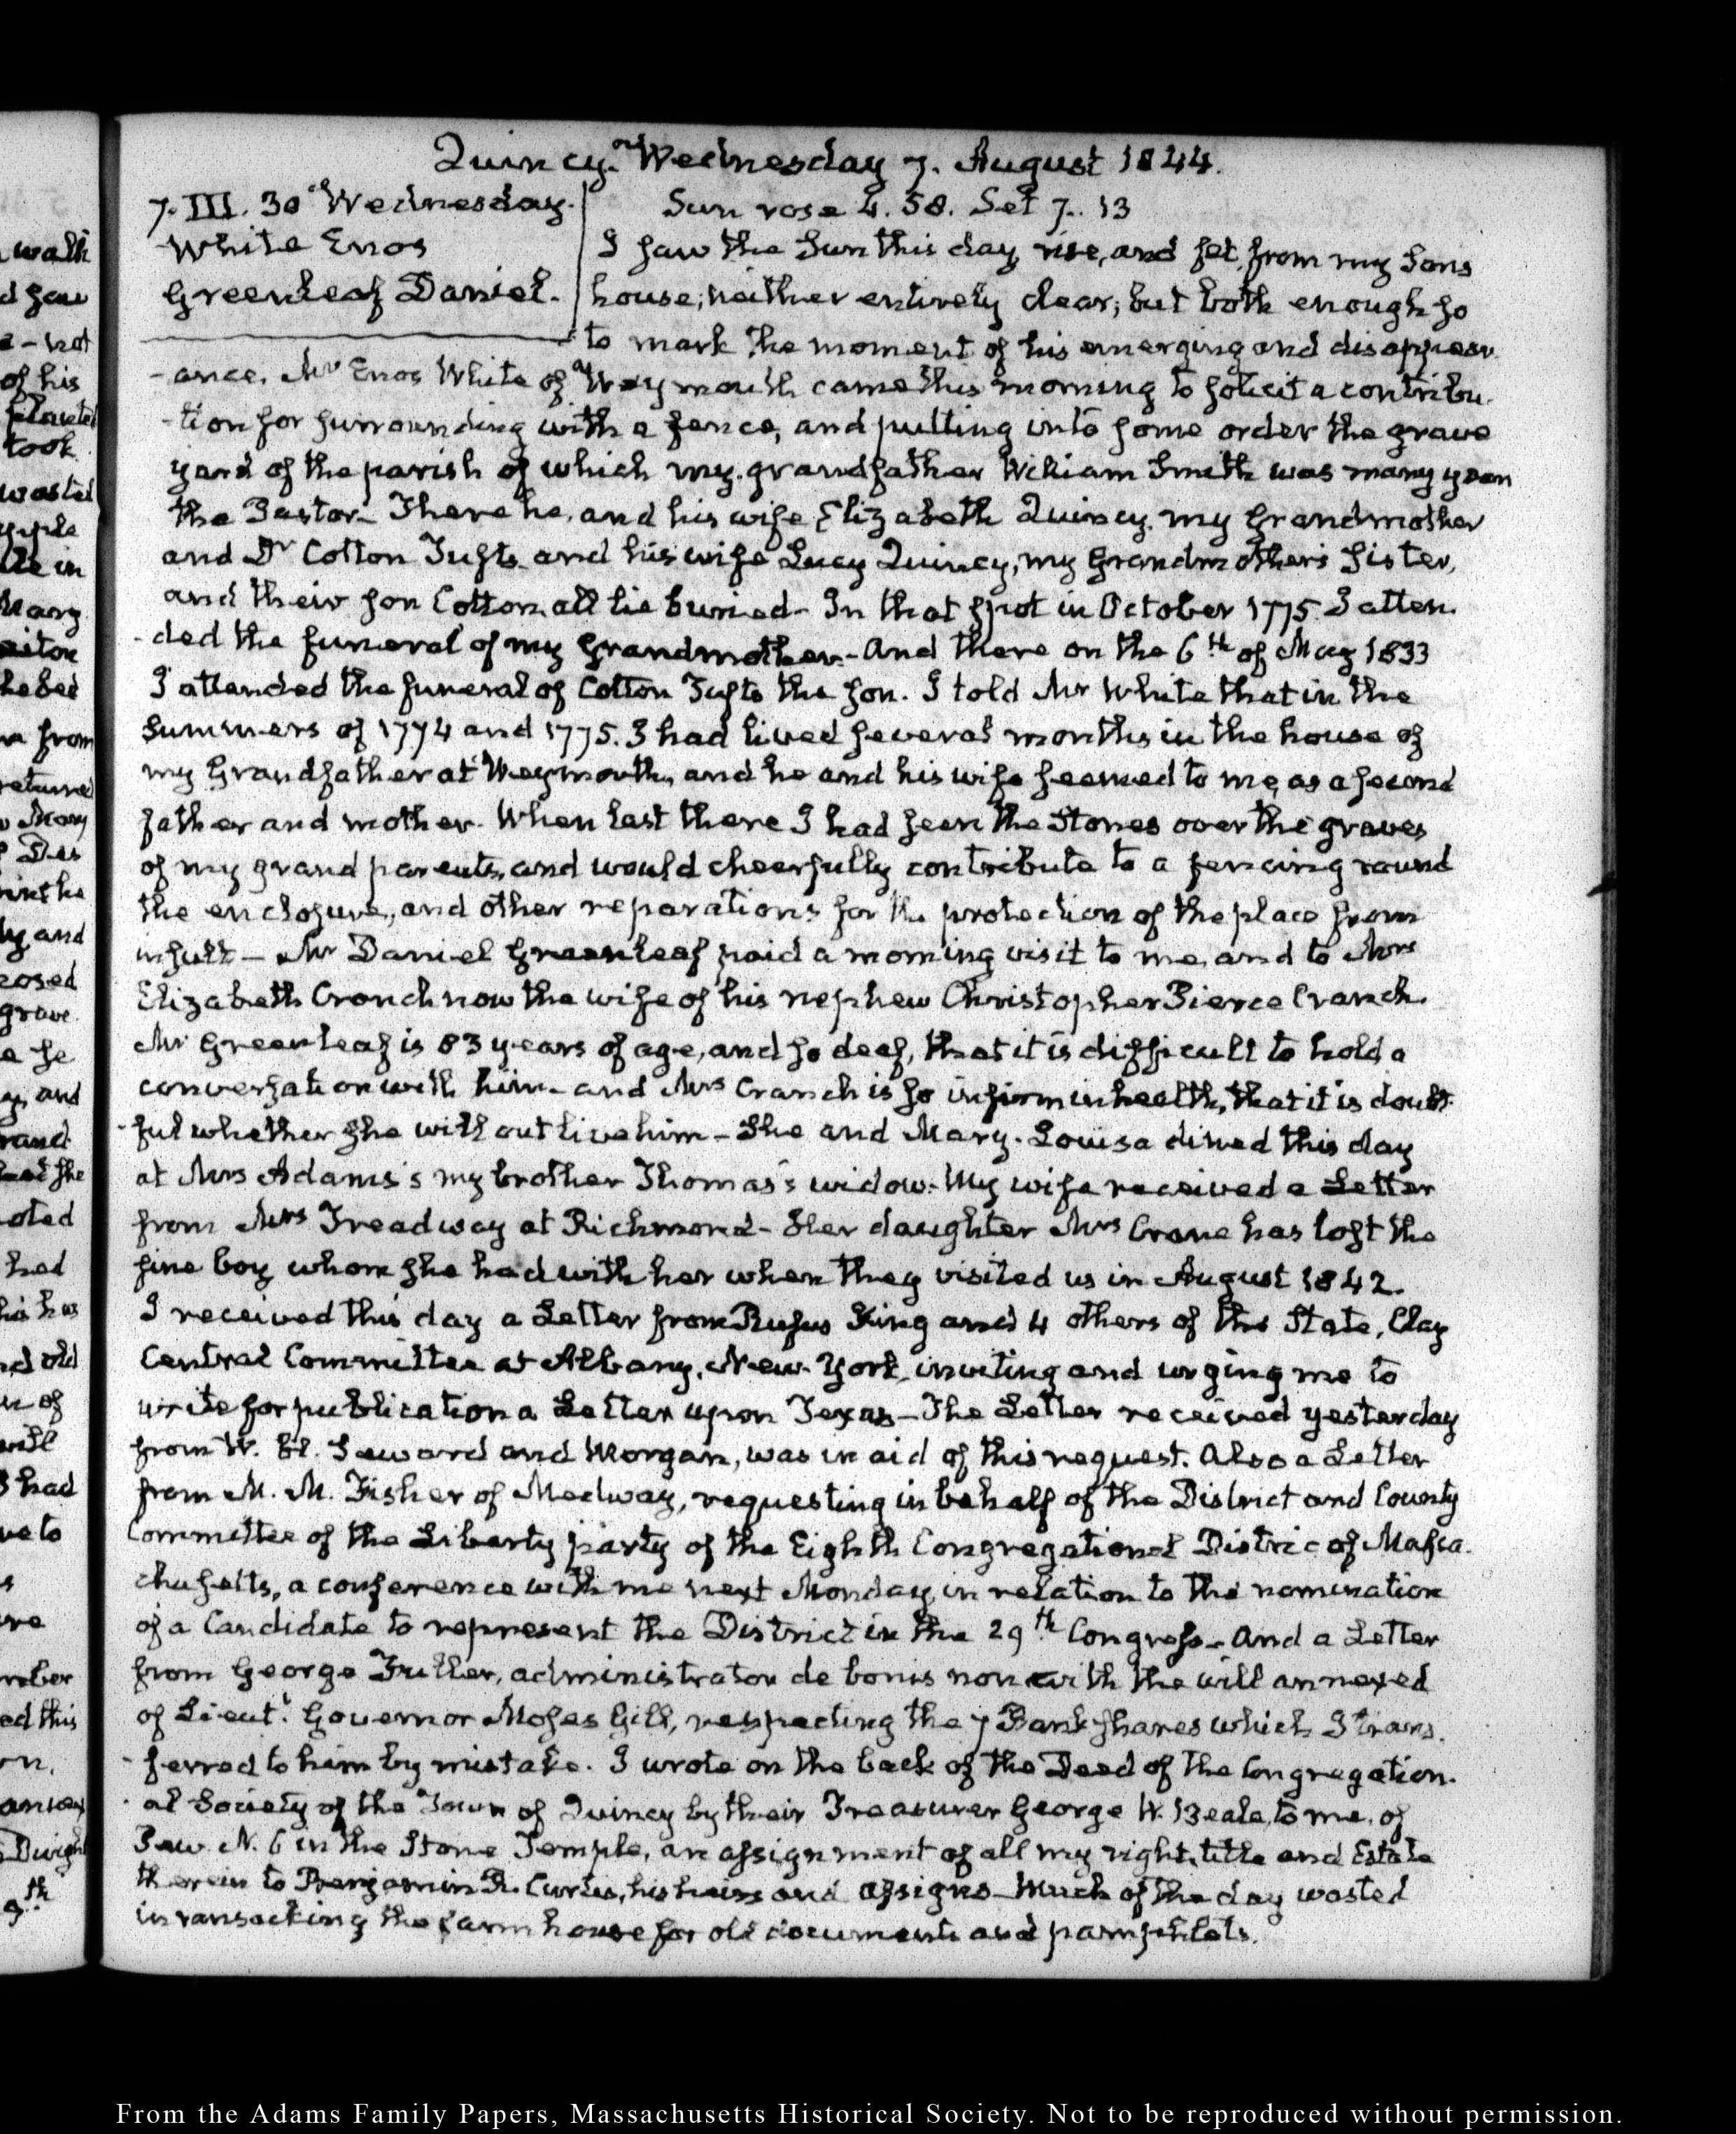 Quincy. Wednesday 7. August 1844.
7. III. 30 Wednesday.
White Enos
Greenleaf Daniel.
Sun rose 4. 58. Set 7. 13
I saw the Sun this day, rise, and set, from my Sons
house; neither entirely clear; but both enough so
to mark the moment of his emerging and disappear-
-ance. Mr Enos White of Weymouth came this morning to solicit a contribu-
-tion for surrounding with a fence, and putting into some order the grave
yard of the parish of which my grandfather William Smith was many years
the Pastor- There he, and his wife Elizabeth Quincy my Grandmother
and Dr Cotton Tufts and his wife Lucy Quincy, my Grandmother's Sister,
and their son Cotton, all lie buried- In that spot in October 1775 I atten-
-ded the funeral of my Grandmother- And there on the 6th of May 1833
I attended the funeral of Cotton Tufts the son. I told Mr White that in the
Summers of 1774 and 1775. I had lived several months in the house of
my Grandfather at Weymouth, and he and his wife seemed to me, as a second
father and mother. When last there I had seen the Stones over the graves
of my grand parents, and would cheerfully contribute to a fencing round
the enclosure, and other reparations for the protection of the place from
insult- Mr Daniel Greenleaf paid a morning visit to me, and to Mrs
Elizabeth Cranch now the wife of his nephew Christopher Pierce Cranch.
Mr Greenleaf is 83 years of age, and so deaf, that it is difficult to hold a
conversation with him- and Mrs Cranch is so infirm in health, that it is doubt-
-ful whether she will outlive him- She and Mary-Louisa dined this day
at Mrs Adams's my brother Thomas's widow. My wife received a Letter
from Mrs Treadway at Richmond- Her daughter Mrs Crane has lost the
fine boy whom she had with her when they visited us in August 1842.
I received this day a Letter from Rufus King and 4 others of the State, Clay
Central Committee at Albany, New-York, inviting and urging me to
write for publication a Letter upon Texas- The Letter received yesterday
from W. H. Seward and Morgan, was in aid of this request. Also a Letter
from M. M. Fisher of Medway, requesting in behalf of the District and County
Committee of the Liberty party of the Eighth Congregational District of Massa-
chusetts, a conference with me next Monday, in relation to the nomination
of a Candidate to represent the District in the 29th Congress- And a Letter
from George Fuller, administrator de bonis non with the will annexed
of Lieutt. Governor Moses Gill, respecting the 7 Bank shares which I trans-
-ferred to him by mistake. I wrote on the back of the Deed of the Congregation-
-al Society of the Town of Quincy by their Treasurer George W. Beale, to me, of
Pew N. 6 in the Stone Temple, an assignment of all my right, title and Estate
therein to Benjamin R. Curtis, his heirs and assigns- Much of the day wasted
in ransacking the farm house for old documents and pamphlets.
From the Adams Family Papers, Massachusetts Historical Society. Not to be reproduced without permission.